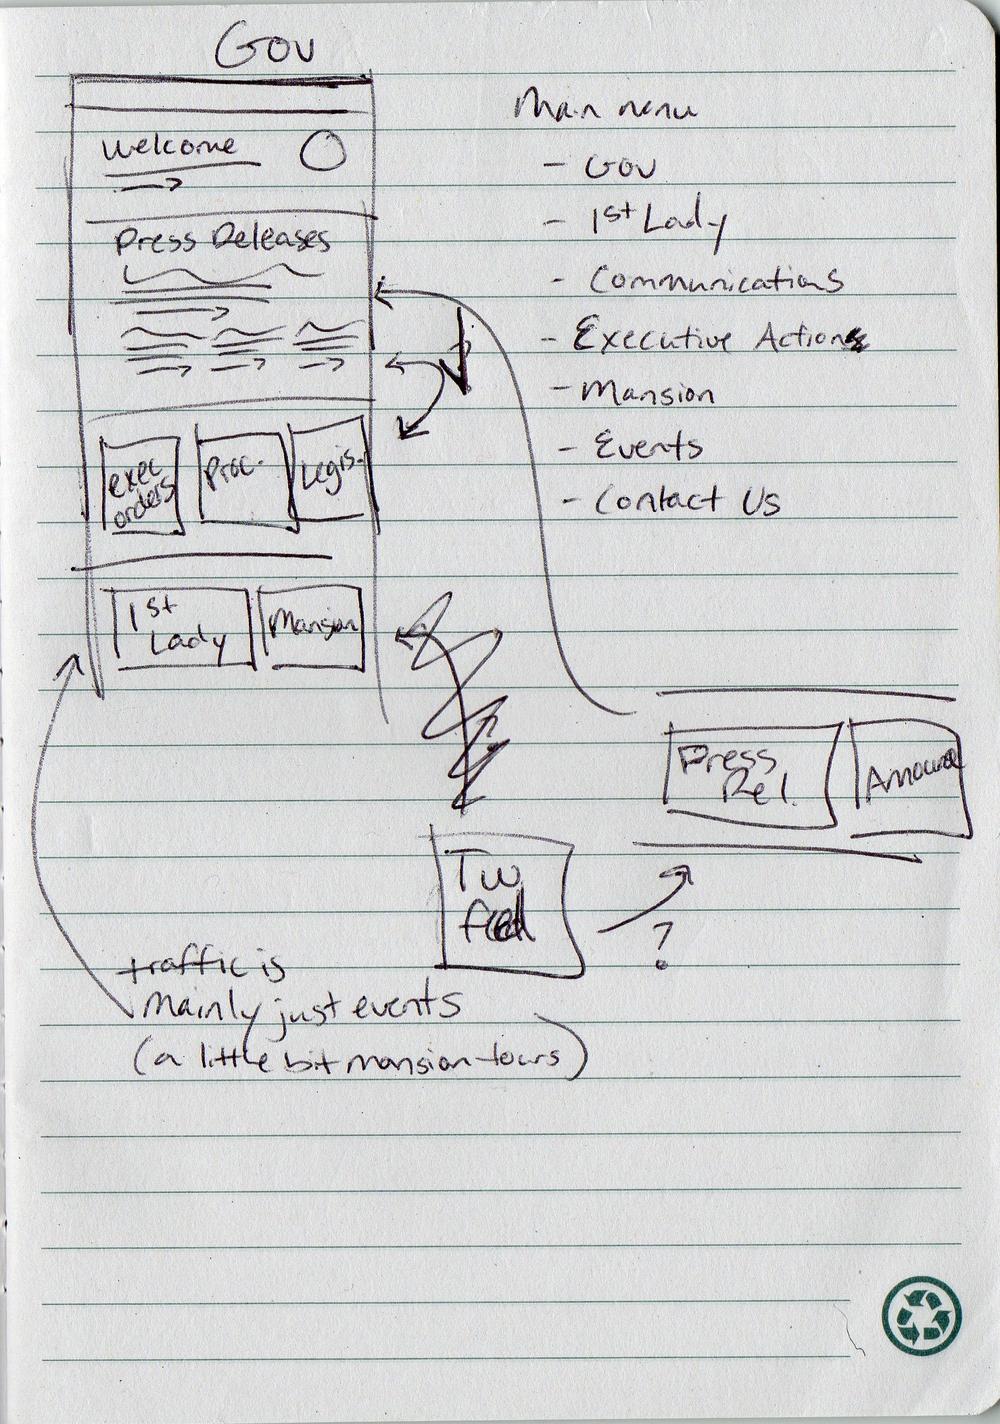 Gov
Welcome
Press Releases
exec
orders
Proc.
Legis.
1st
Lady
Mansion
Main menu
- Gov
- 1st Lady
- Communications
- Executive Actions
- Mansion
- Events
- Contact Us
?
Press
Rel.
Tw
feed
?
traffic is
mainly just events
(a little bit mansion tours)